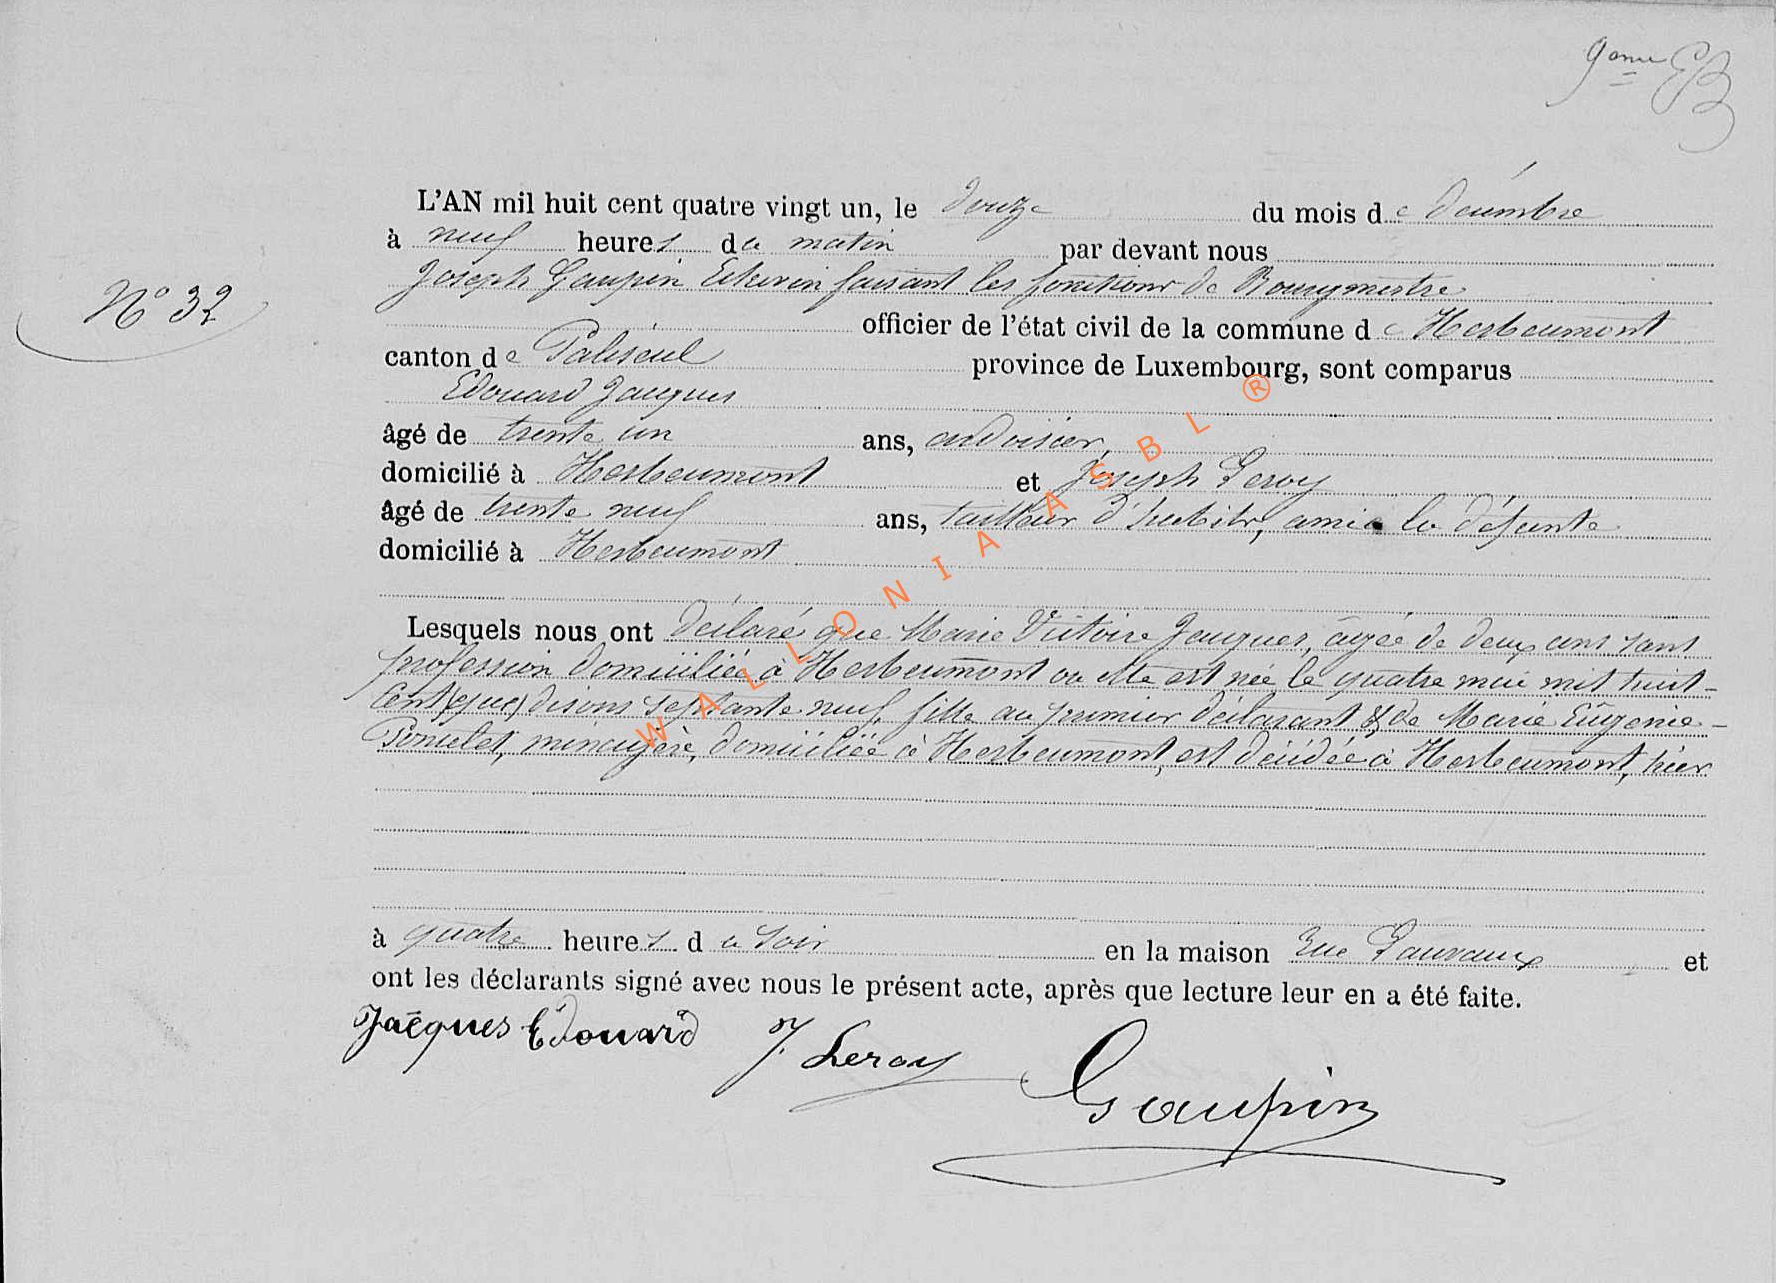 9ème EB
L'AN mil huit cent quatre vingt un, le douze du mois de décembre
à neuf heures du matin par devant nous
Joseph Gaupin Echevin faisant les fonctions de Bourgmestre
N° 32
officier de l'état civil de la commune de Herbeumont
canton de Paliseul province de Luxembourg, sont comparus
Edouard Jacques
âgé de trente un ans, ardoisier,
domicilié à Herbeumont et Joseph Leroy
âgé de trente neuf ans, tailleur d'habits, ami de la défunte
domicilié à Herbeumont
Lesquels nous ont déclaré que Marie Victoire Jacques, âgée de deux ans sans
profession domiciliée à Herbeumont ou elle est née le quatre mai mil huit-
cent (que) disons septante neuf, fille au premier déclarant & de Marie Eugénie-
Poncelet, ménagère, domiciliée à Herbeumont, est décédée à Herbeumont, hier
à quatre heures du soir en la maison Rue Lauvaux et
ont les déclarants signé avec nous le présent acte, après que lecture leur en a été faite.
Jacques Edouard J. Leroy Gaupin
WALLONIA ASBL ®